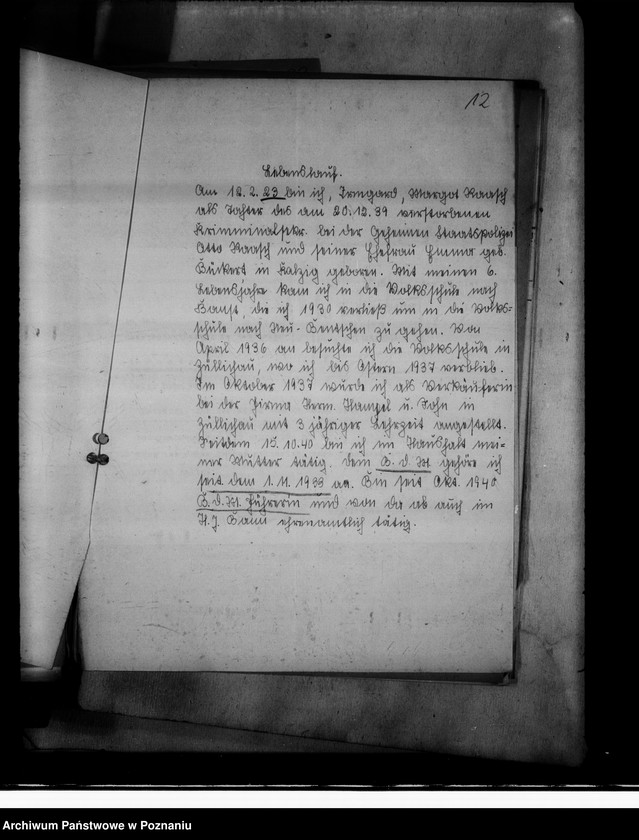 12
Lebenslauf.
Am 12. 2. 23 bin ich, Irmgard, Margot Raasch
als Tochter des am 20.12.39 verstorbenen
Kriminalsekr. bei der Geheimen Staatspolizei
Otto Raasch und seiner Ehefrau Emma geb.
Bückert in Kalzig geboren. Mit meinen 6.
Lebensjahre kam ich in die Volksschule nach
Bomst, die ich 1930 verließ um in die Volks-
schule nach Neu-Bentschen zu gehen. Von
April 1936 an besuchte ich die Volksschule in
Züllichau, wo ich bis Ostern 1937 verblieb.
Im Oktober 1937 wurde ich als Verkäuferin
bei der Firma Herm. Hampel u. Sohn in
Züllichau mit 3 jähriger Lehrzeit angestellt.
Seitdem 15. 10. 40 bin ich im Haushalt mei-
ner Mutter tätig. Dem B. d. M. gehöre ich
seit dem 1. 11. 1933 an. Bin seit Okt. 1940
B. d. M. Führerin und von da ab auch im
H. J. Bann ehrenamtlich tätig.
Archiwum Państwowe w Poznaniu